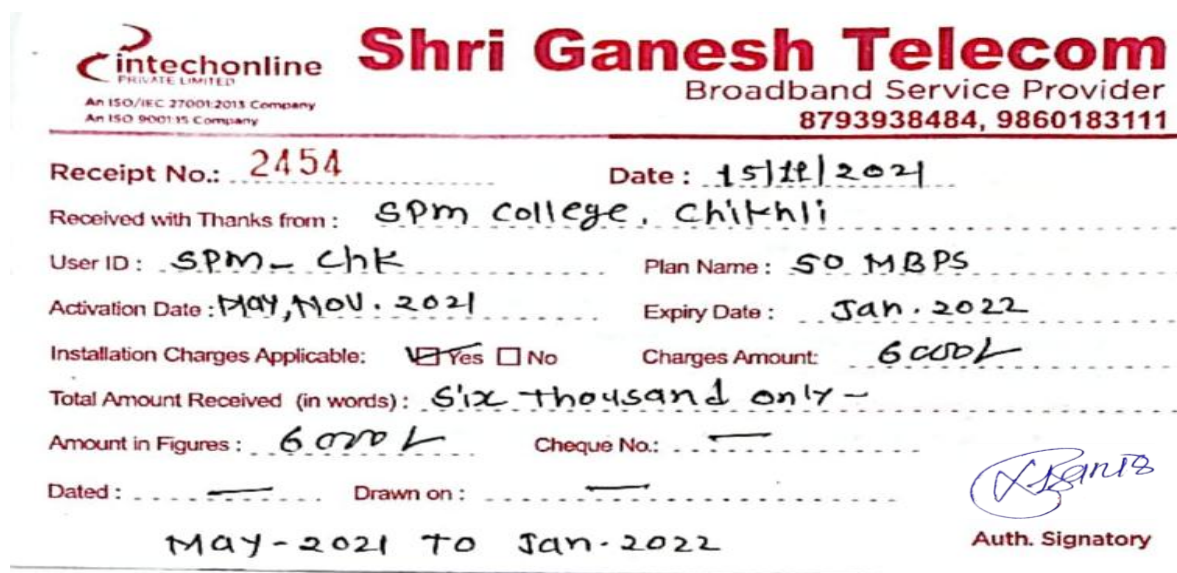 intechonline
PRIVATE LIMITED
An ISO/IEC 27001:2013 Company
An ISO 9001:15 Company
Shri Ganesh Telecom
Broadband Service Provider
8793938484, 9860183111
Receipt No.: 2454 Date : 15/11/2021
Received with Thanks from : SPM College, Chikhli
User ID : SPM_ Chk Plan Name : 50 MBPS
Activation Date : May, Nov. 2021 Expiry Date : Jan. 2022
Installation Charges Applicable: ☑ Yes ☐ No Charges Amount: 6000/-
Total Amount Received (in words) : Six thousand only -
Amount in Figures : 6000/- Cheque No.: —
Dated : — Drawn on : —
May-2021 TO Jan-2022
Auth. Signatory